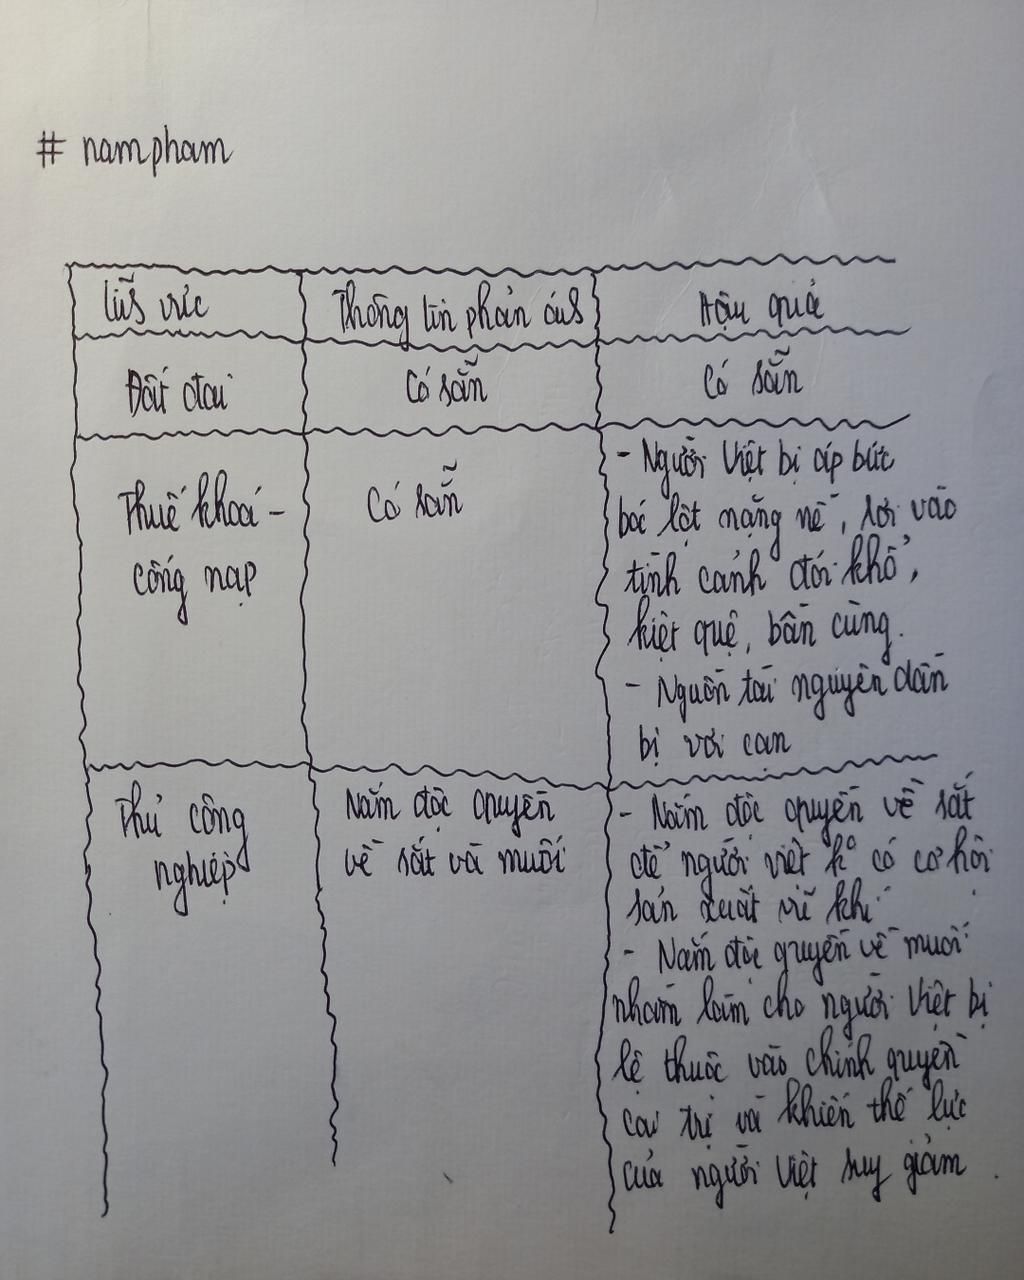 # nampham
Lĩh vực
Thông tin phản ánh
Hậu quả
Đất đai
Có sẵn
Có sẵn
Thuế khoá -
cống nạp
Có sẵn
- Người Việt bị áp bức
bóc lột nặng nề, rơi vào
tình cảnh đói khổ,
kiệt quệ, bần cùng.
- Nguồn tài nguyên dần
bị vơi cạn
Thủ công
nghiệp
Nắm độc quyền
về sắt và muối
- Nắm độc quyền về sắt
để người việt k° có cơ hội
sản xuất vũ khí
- Nắm độc quyền về muối
nhằm làm cho người Việt bị
lệ thuộc vào chính quyền
cai trị và khiến thế lực
của người Việt suy giảm.